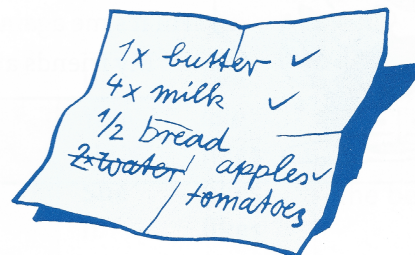 1x butter ✓
4x milk ✓
1/2 bread
2x water apples ✓
tomatoes